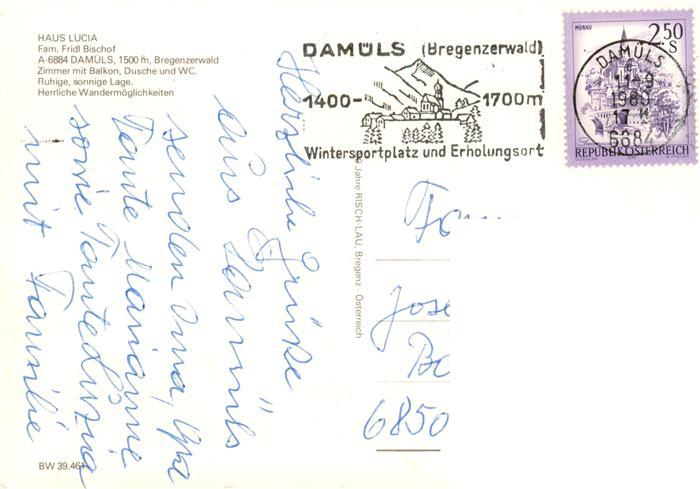 HAUS LUCIA
Fam. Fridl Bischof
A-6884 DAMÜLS, 1500 m, Bregenzerwald
Zimmer mit Balkon, Dusche und WC.
Ruhige, sonnige Lage.
Herrliche Wandermöglichkeiten
DAMÜLS (Bregenzerwald)
1400- 1700m
Wintersportplatz und Erholungsort
MURAU
2.50
S
REPUBLIK ÖSTERREICH
DAMÜLS
11.-9
17
Herzliche Grüße
aus Damüls
senden Oma, Opa
Tante Marianne
sowie Tante Luzia
mit Familie
Jahre RISCH-LAU, Bregenz - Österreich
Fam
Jose
6850
BW 39.461